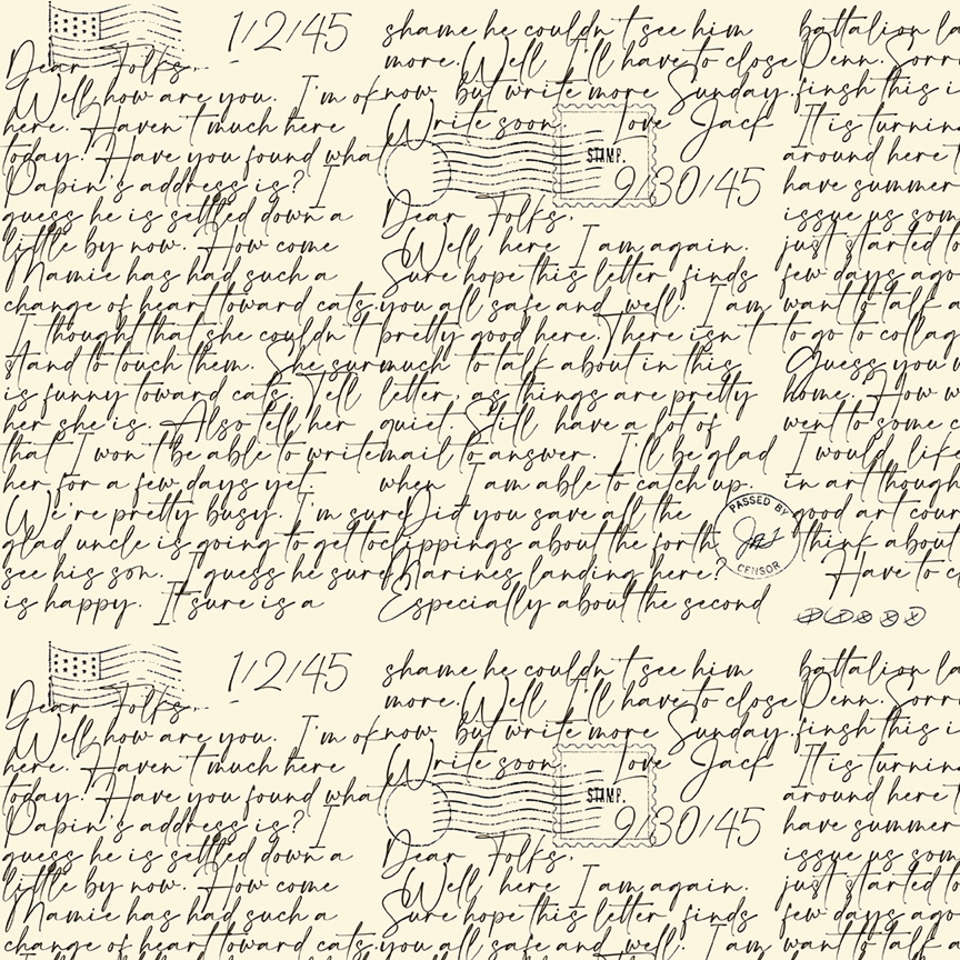 1/2/45
Dear Folks,
Well, how are you. I'm ok
here. Haven't much here
today. Have you found what
Papin's address is? I
guess he is settled down a
little by now. How come
Mamie has had such a
change of heart toward cats.
I thought that she couldn't
stand to touch them. She sur
is funny toward cats. Tell
her she is. Also tell her
that I won't be able to write
her for a few days yet.
We're pretty busy. I'm sure
glad uncle is going to get to
see his son. I guess he sure
is happy. It sure is a
shame he couldn't see him
more. Well I'll have to close
now but write more Sunday.
Write soon. Love Jack
STAMP.
9/30/45
Dear Folks,
Well here I am again.
Sure hope this letter finds
you all safe and well. I am
pretty good here. There isn't
much to talk about in this
letter, as things are pretty
quiet. Still have a lot of
mail to answer. I'll be glad
when I am able to catch up.
Did you save all the
clippings about the forth
Marines landing here?
Especially about the second
PASSED BY
CENSOR
battalion la
Penn. Sorr
finsh this i
It is turnin
around here t
have summer
issue us som
just started to
few days ago
want to talk a
to go to collag
Guess you w
home. How w
went to some c
I would like
in art though
good art cour
think about
Have to c
1/2/45
Dear Folks,
Well, how are you. I'm ok
here. Haven't much here
today. Have you found what
Papin's address is? I
guess he is settled down a
little by now. How come
Mamie has had such a
change of heart toward cats.
shame he couldn't see him
more. Well I'll have to close
now but write more Sunday.
Write soon. Love Jack
STAMP.
9/30/45
Dear Folks,
Well here I am again.
Sure hope this letter finds
you all safe and well. I am
battalion la
Penn. Sorr
finsh this i
It is turnin
around here t
have summer
issue us som
just started to
few days ago
want to talk a